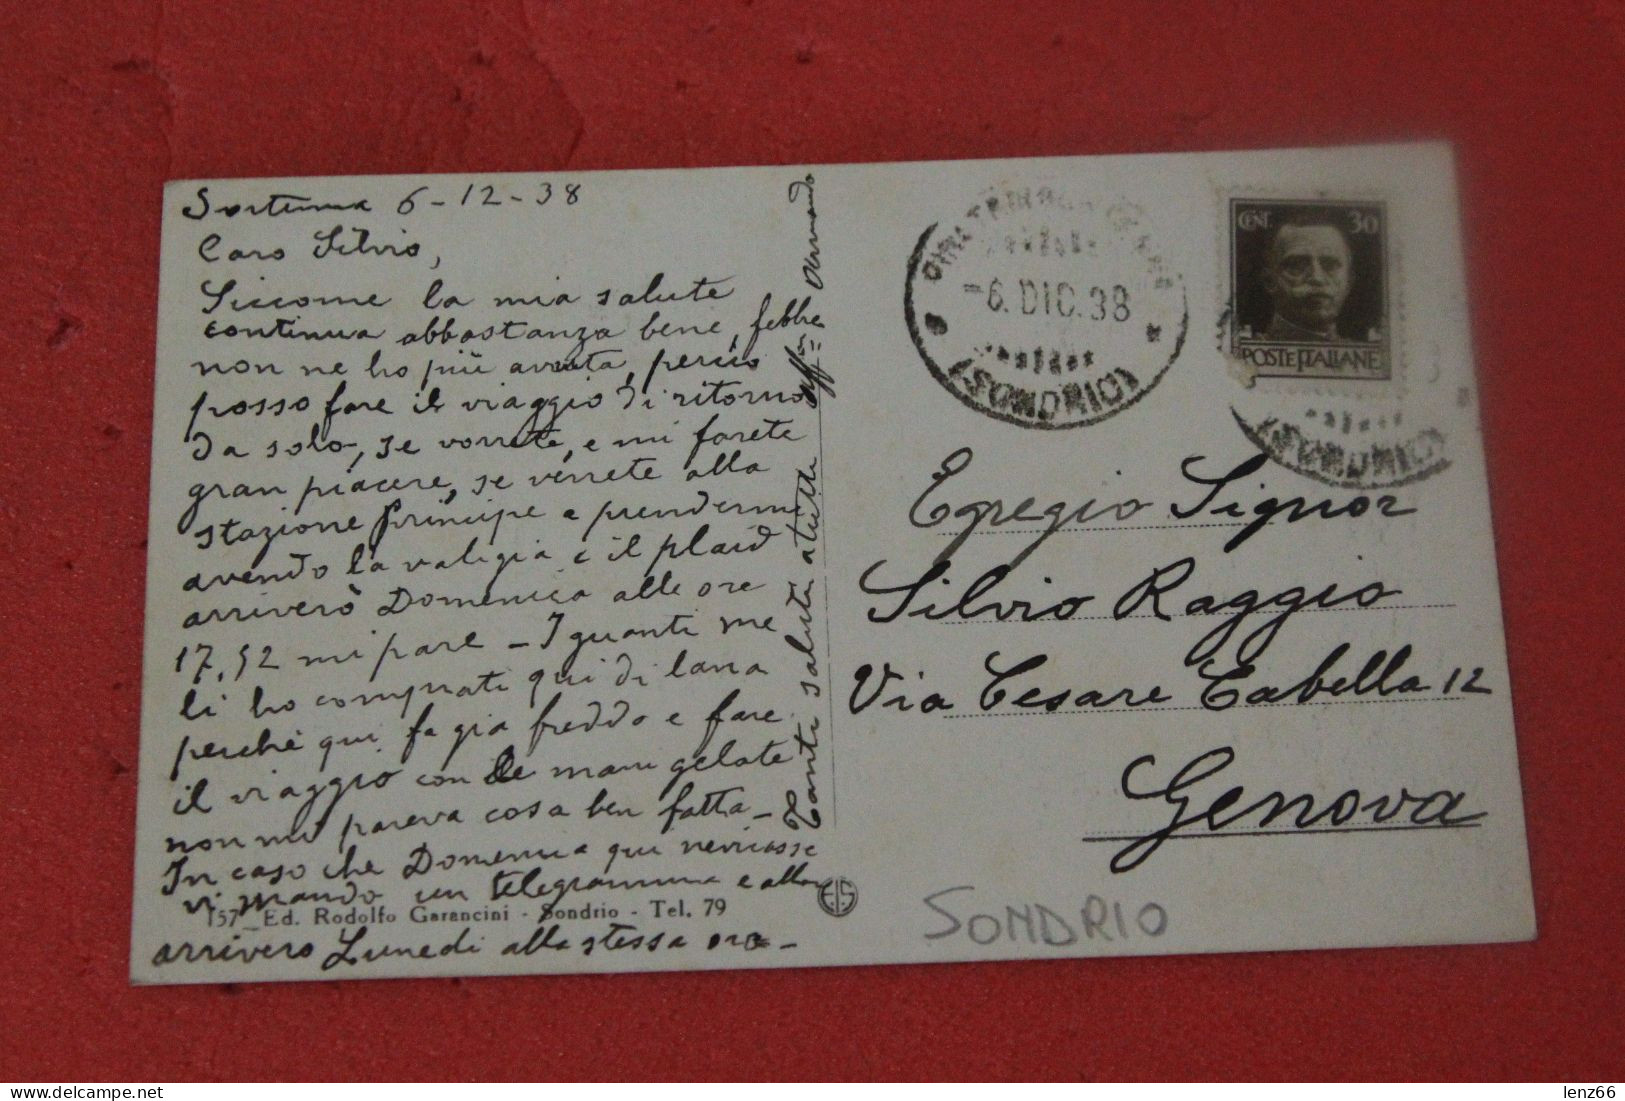 Sortenna 6-12-38
Caro Silvio,
Siccome la mia salute
continua abbastanza bene, febbre
non ne ho più avuta, perciò
posso fare il viaggio di ritorno
da solo, se vorrete, e mi farete
gran piacere, se verrete alla
stazione Principe a prendermi
avendo la valigia e il plaid
arriverò Domenica alle ore
17,52 mi pare - I guanti me
li ho comprati qui di lana
perchè qui fa già freddo e fare
il viaggio con le mani gelate
non mi pareva cosa ben fatta -
In caso che Domenica qui nevicasse
vi mando un telegramma e allora
157 - Ed. Rodolfo Garancini - Sondrio - Tel. 79
arrivero Lunedi alla stessa ora -
Tanti saluti a tutti aff= Armando
EIS
-6.DIC.38
(SONDRIO)
CENT. 30
POSTE ITALIANE
(SONDRIO)
Egregio Signor
Silvio Raggio
Via Cesare Cabella 12
Genova
SONDRIO
lenz66